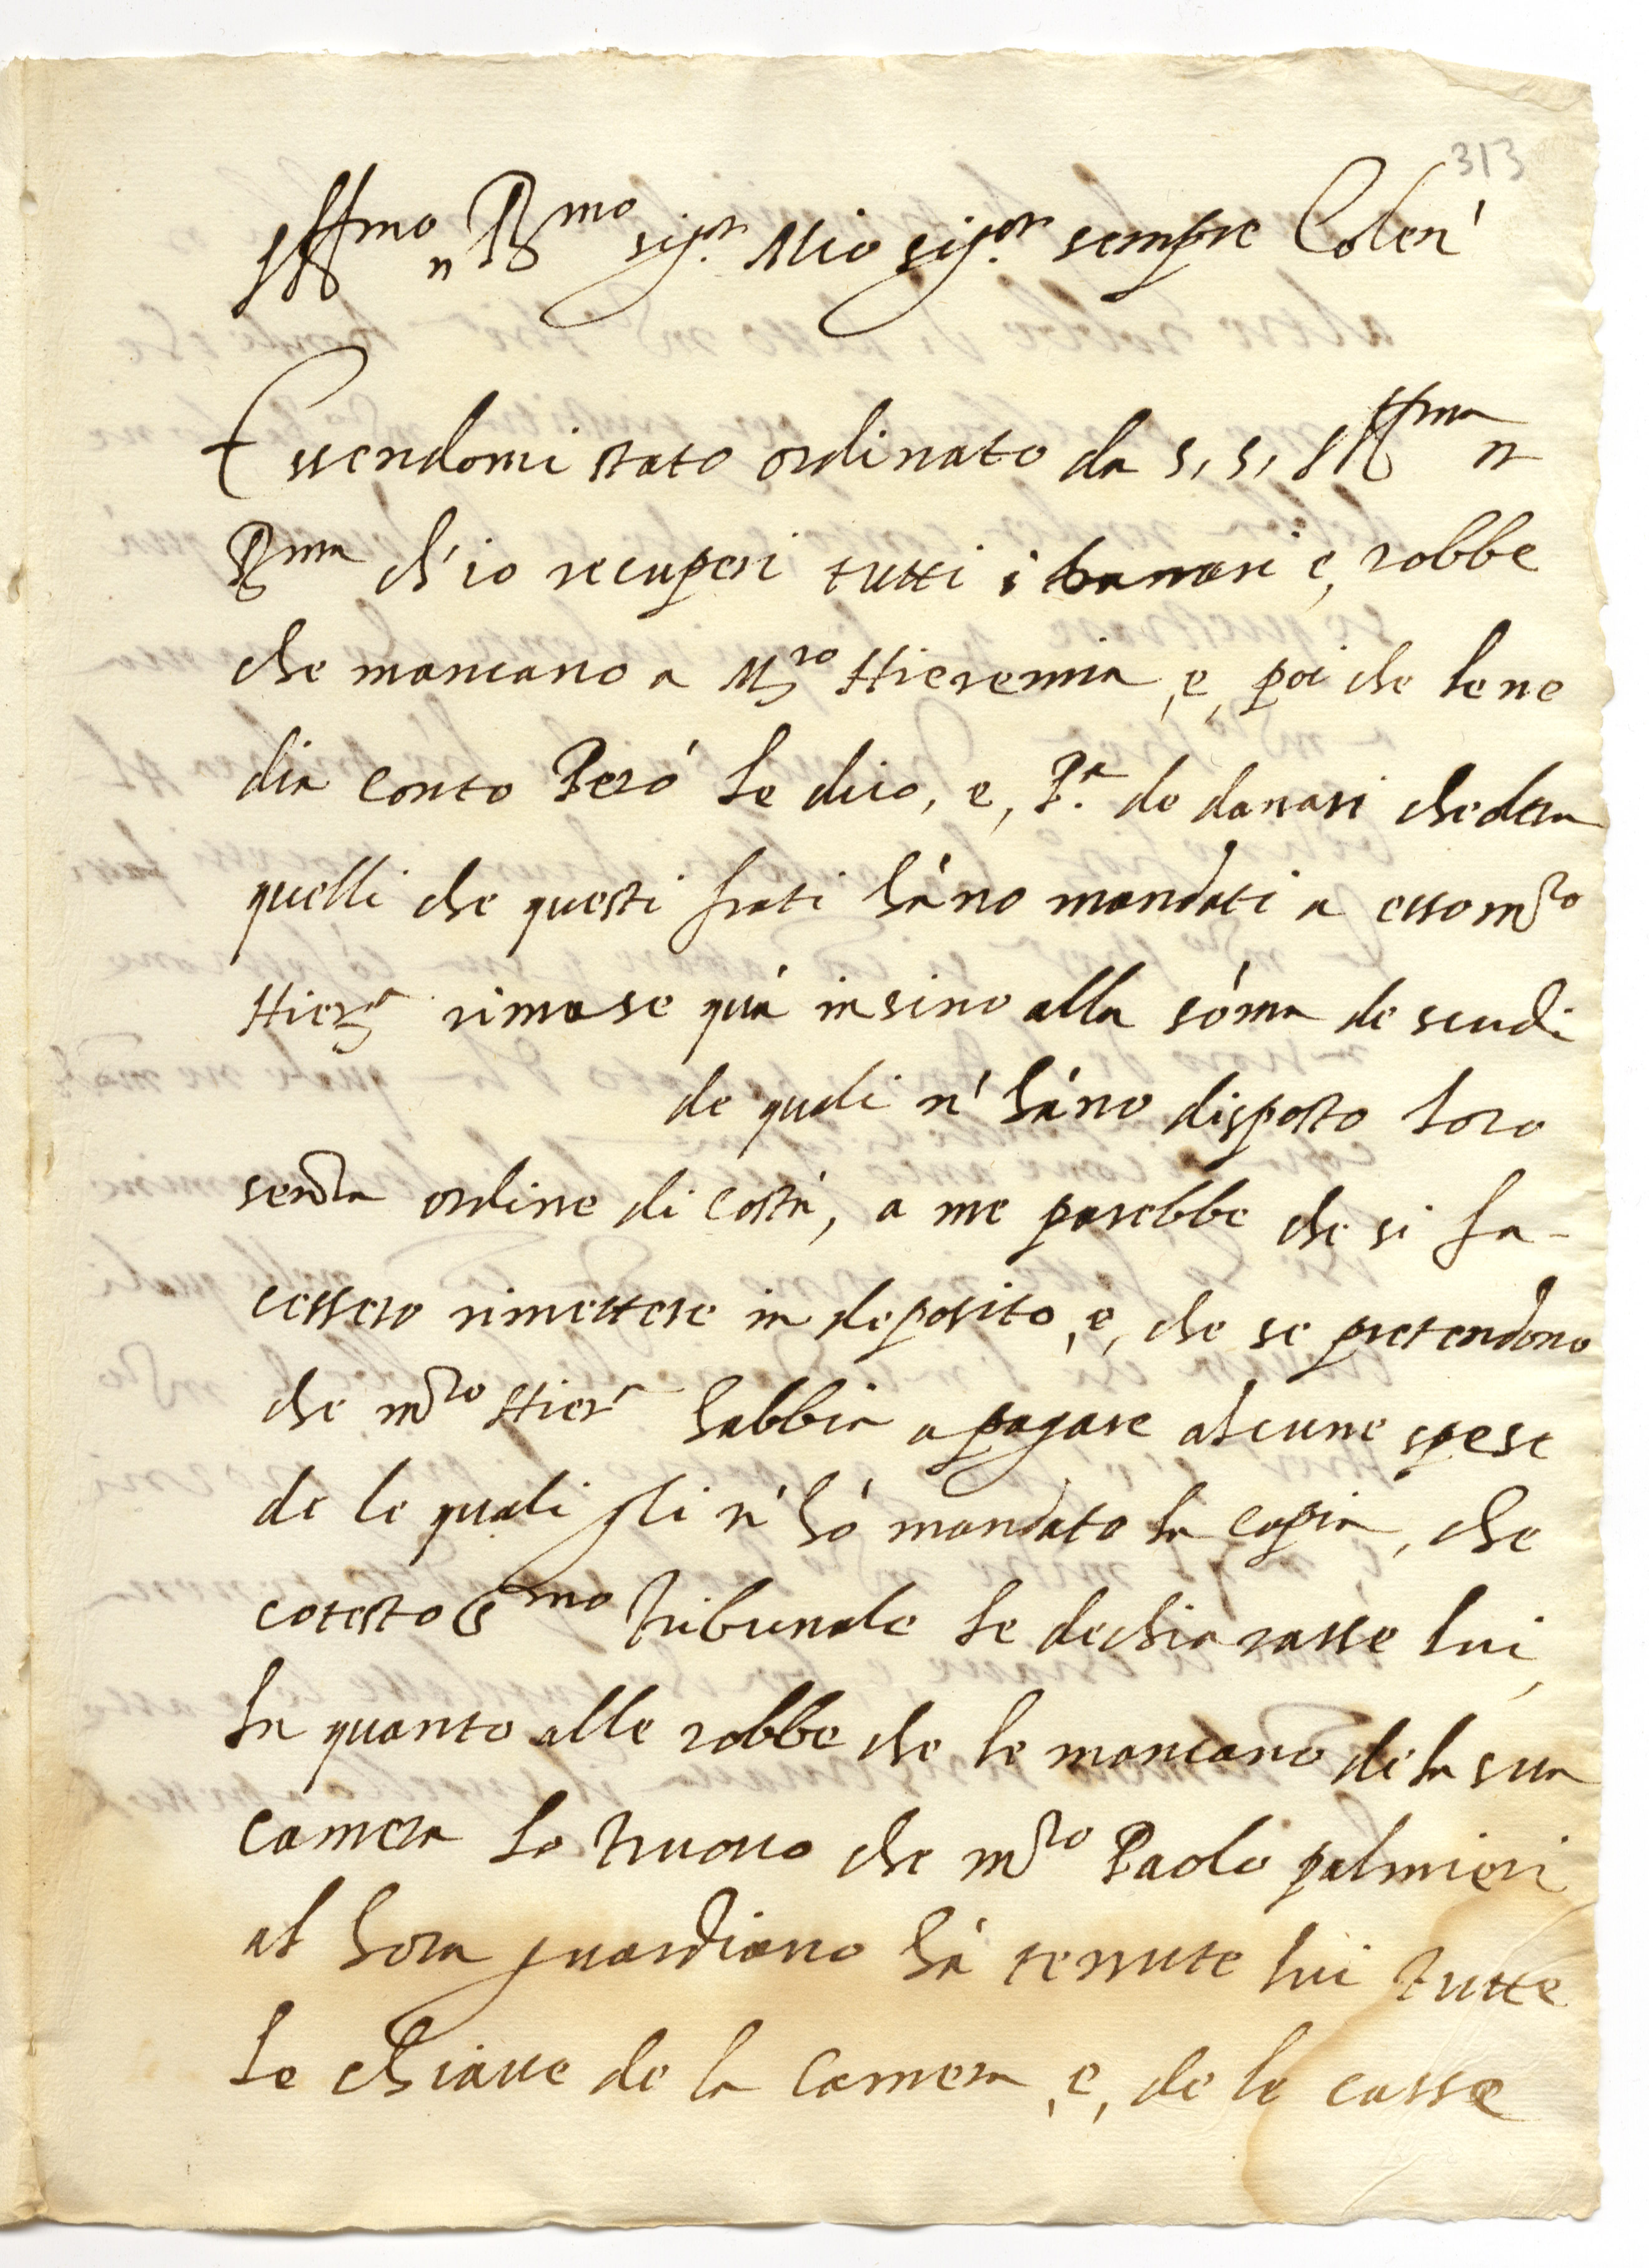 313
Ill^mo et R^mo sig^r. Mio sig^or. sempre Colen'
Essendomi stato ordinato da S, S, Ill^ma et
R^ma ch'io recuperi tutti i danari e, robbe
che mancano a M^ro Hieremia, e, poi che le ne
dia conto Però le dico, e, P^a. de danari che dera
quelli che questi frati hàno mandati a esso m^ro
Hier^a rimase quà insino alla sóma de scudi
de quali n' hàno disposto loro
senza ordine di costà, a me parebbe che si fa-
cessero rimettere in deposito, e, che se pretendono
che m^ro Hier^a habbia a pagare alcune spese
de le quali gli n' hò mandato la copia, che
cotesto S^mo tribunale le dechiarasse lui,
In quanto alle robbe che le mancano de la sua
camera Io truovo che m^ro Paolo palmieri
al hora guardiano hà tenute lui tutte
le chiave de la camera, e, de le casse